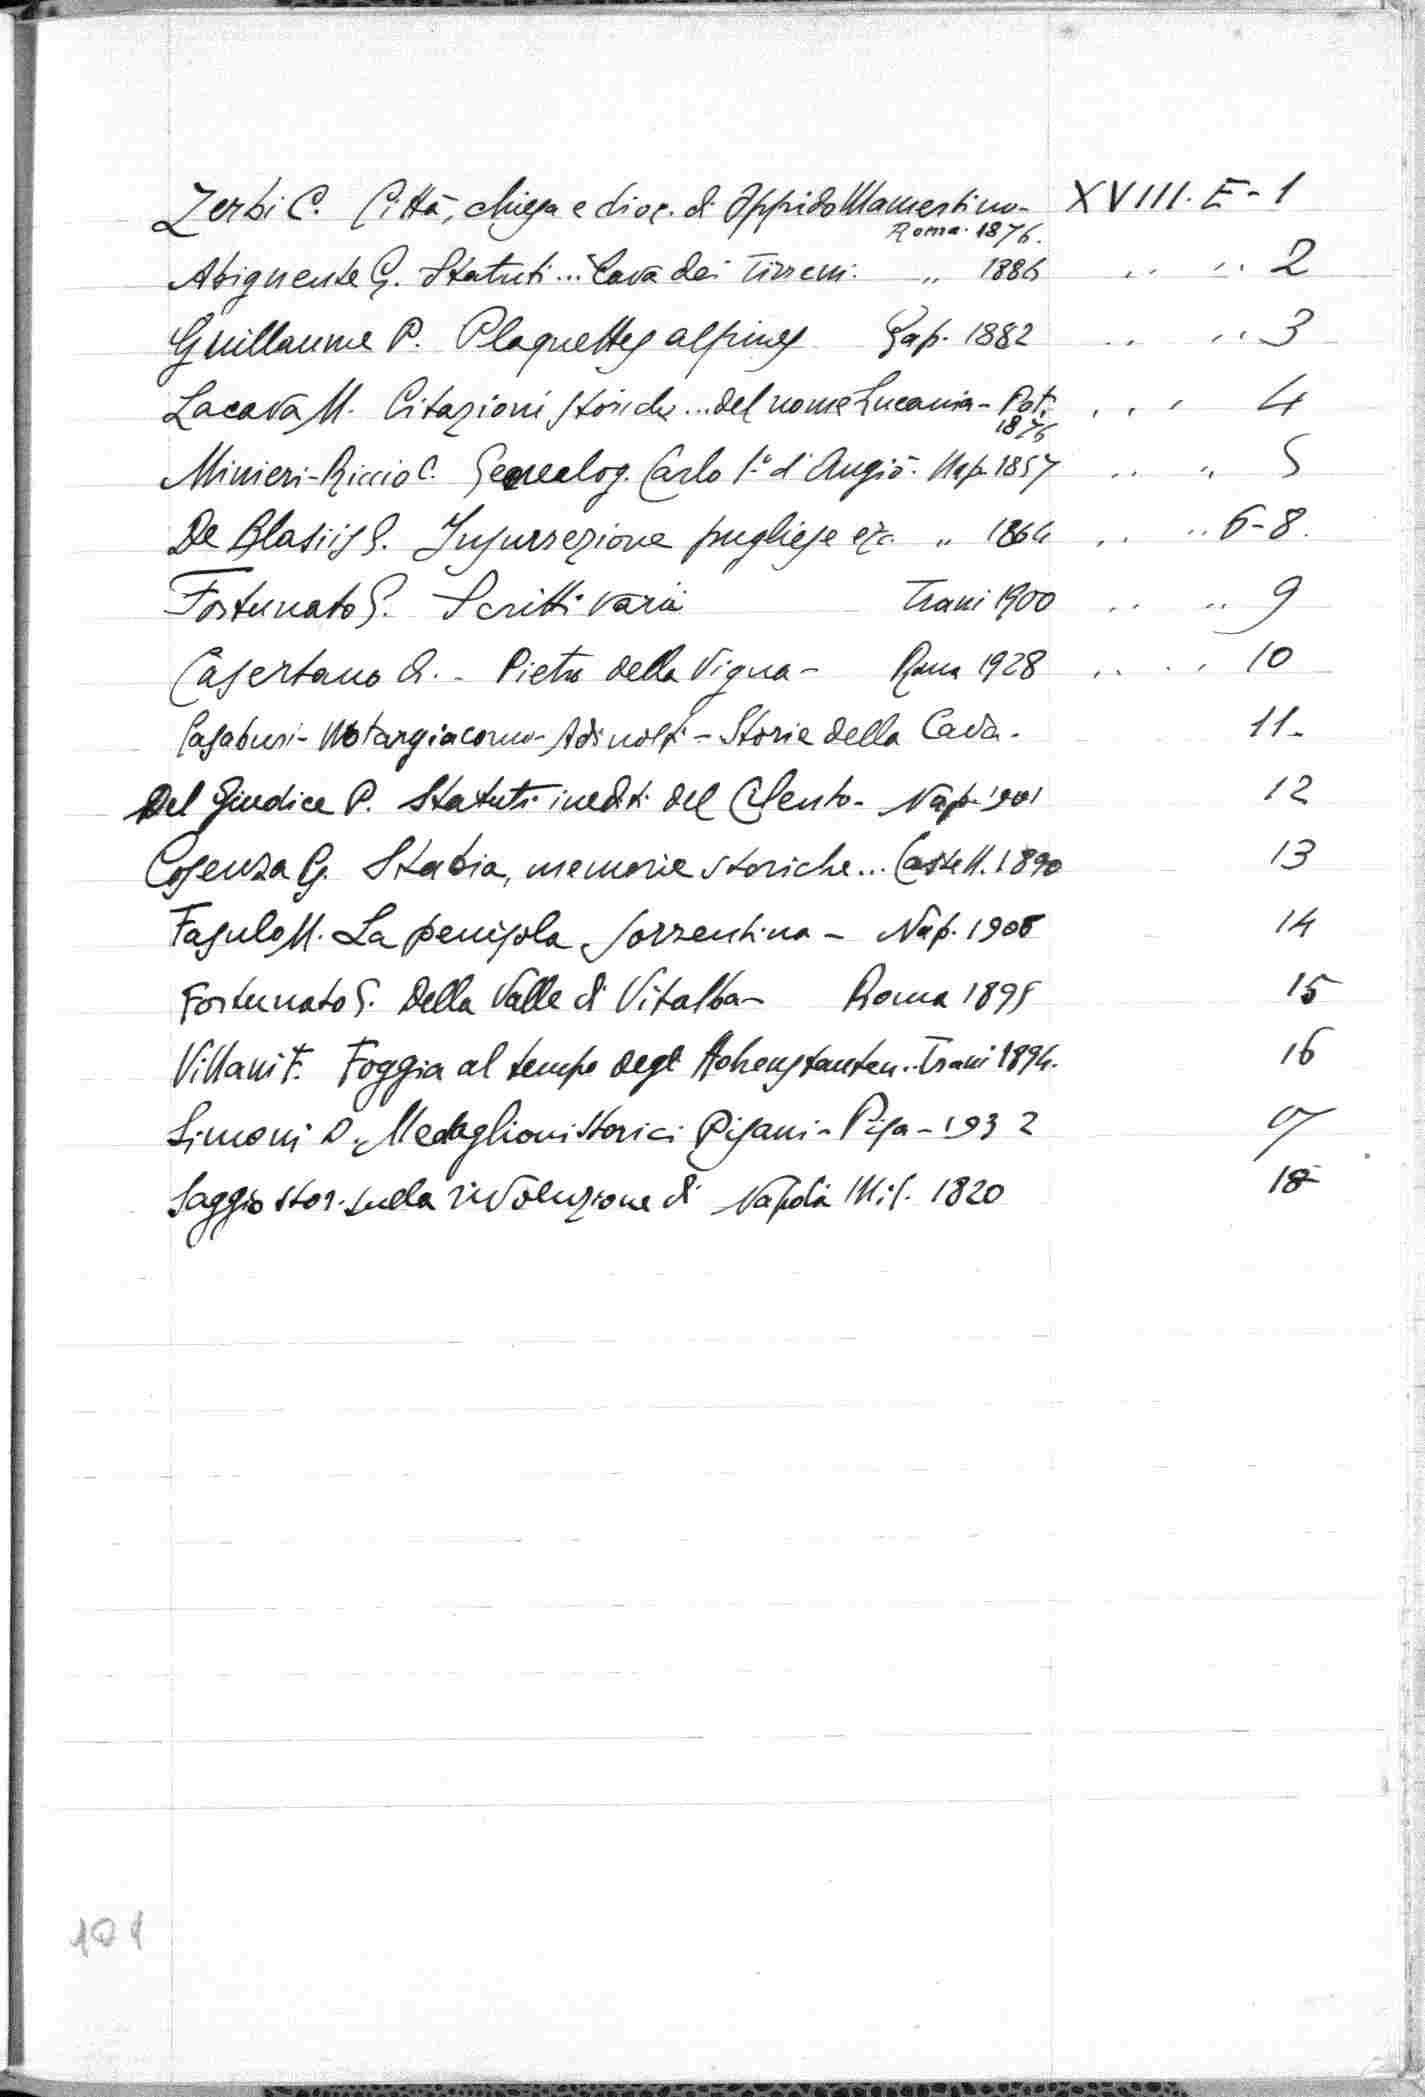 Zerbi C. Città, chiesa e dioc. di Oppido Mamertino- XVIII. E-1
Roma. 1876.
Abignente G. Statuti... Cava dei Tirreni. „ 1886 „ „ 2
Guillaume P. Plaquettes alpines Gap. 1882 „ „ 3
Lacava M. Citazioni storiche... del nome Lucania- Pot. „ „ 4
1876
Minieri-Riccio C. Genealog. Carlo 1.º d'Angiò. Nap. 1857 „ „ 5
De Blasiis G. Insurrezione pugliese ec. „ 1864 „ „ 6-8.
Fortunato G. Scritti varii Trani 1900 „ „ 9
Casertano A. - Pietro della Vigna - Roma 1928 „ „ 10
Casaburi- Notargiacomo- Adinolfi - Storie della Cava. 11-
Del Giudice P. Statuti inediti del Cilento- Nap. 1901 12
Cosenza G. Stabia, memorie storiche... Castell. 1890 13
Fasulo M. La penisola sorrentina - Nap. 1906 14
Fortunato G. Della Valle di Vitalba- Roma 1895 15
Villani F. Foggia al tempo degli Hohenstaufen.. Trani 1894. 16
Simoni D. Medaglioni storici Pisani - Pisa - 1932 17
Saggio stor. sulla rivoluzione di Napoli Mil. 1820 18
101